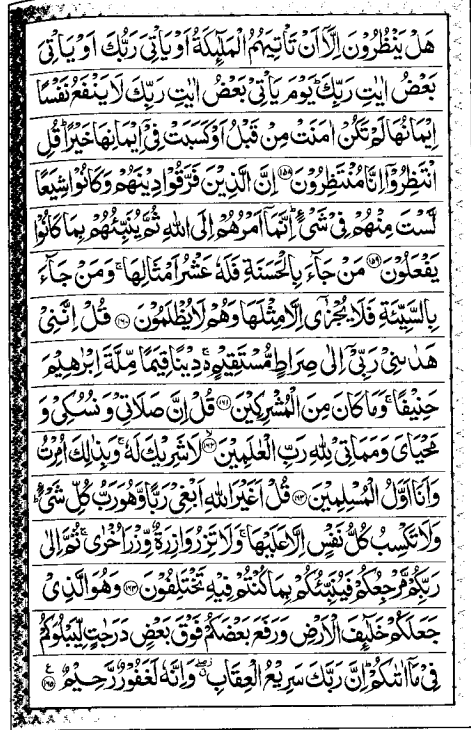 هَلْ يَنْظُرُوْنَ اِلَّاۤ اَنْ تَاْتِيَهُمُ الْمَلٰٓئِكَةُ اَوْ يَاْتِيَ رَبُّكَ اَوْ يَاْتِيَ
بَعْضُ اٰيٰتِ رَبِّكَ ؕ يَوْمَ يَاْتِيْ بَعْضُ اٰيٰتِ رَبِّكَ لَا يَنْفَعُ نَفْسًا
اِيْمَانُهَا لَمْ تَكُنْ اٰمَنَتْ مِنْ قَبْلُ اَوْ كَسَبَتْ فِيْۤ اِيْمَانِهَا خَيْرًا ؕ قُلِ
انْتَظِرُوْۤا اِنَّا مُنْتَظِرُوْنَ ﴿۱۵۸﴾ اِنَّ الَّذِيْنَ فَرَّقُوْا دِيْنَهُمْ وَكَانُوْا شِيَعًا
لَّسْتَ مِنْهُمْ فِيْ شَيْءٍ ؕ اِنَّمَاۤ اَمْرُهُمْ اِلَى اللّٰهِ ثُمَّ يُنَبِّئُهُمْ بِمَا كَانُوْا
يَفْعَلُوْنَ ﴿۱۵۹﴾ مَنْ جَآءَ بِالْحَسَنَةِ فَلَهٗ عَشْرُ اَمْثَالِهَا ۚ وَمَنْ جَآءَ
بِالسَّيِّئَةِ فَلَا يُجْزٰۤى اِلَّا مِثْلَهَا وَهُمْ لَا يُظْلَمُوْنَ ﴿۱۶۰﴾ قُلْ اِنَّنِيْ
هَدٰىنِيْ رَبِّيْۤ اِلٰى صِرَاطٍ مُّسْتَقِيْمٍ ۚ دِيْنًا قِيَمًا مِّلَّةَ اِبْرٰهِيْمَ
حَنِيْفًا ۚ وَمَا كَانَ مِنَ الْمُشْرِكِيْنَ ﴿۱۶۱﴾ قُلْ اِنَّ صَلَاتِيْ وَنُسُكِيْ وَ
مَحْيَايَ وَمَمَاتِيْ لِلّٰهِ رَبِّ الْعٰلَمِيْنَ ﴿۱۶۲﴾ۙ لَا شَرِيْكَ لَهٗ ۚ وَبِذٰلِكَ اُمِرْتُ
وَاَنَا اَوَّلُ الْمُسْلِمِيْنَ ﴿۱۶۳﴾ قُلْ اَغَيْرَ اللّٰهِ اَبْغِيْ رَبًّا وَّهُوَ رَبُّ كُلِّ شَيْءٍ ؕ
وَلَا تَكْسِبُ كُلُّ نَفْسٍ اِلَّا عَلَيْهَا ۚ وَلَا تَزِرُ وَازِرَةٌ وِّزْرَ اُخْرٰى ۚ ثُمَّ اِلٰى
رَبِّكُمْ مَّرْجِعُكُمْ فَيُنَبِّئُكُمْ بِمَا كُنْتُمْ فِيْهِ تَخْتَلِفُوْنَ ﴿۱۶۴﴾ وَهُوَ الَّذِيْ
جَعَلَكُمْ خَلٰٓئِفَ الْاَرْضِ وَرَفَعَ بَعْضَكُمْ فَوْقَ بَعْضٍ دَرَجٰتٍ لِّيَبْلُوَكُمْ
فِيْ مَاۤ اٰتٰىكُمْ ؕ اِنَّ رَبَّكَ سَرِيْعُ الْعِقَابِ ۖ وَاِنَّهٗ لَغَفُوْرٌ رَّحِيْمٌ ﴿۱۶۵﴾ ع